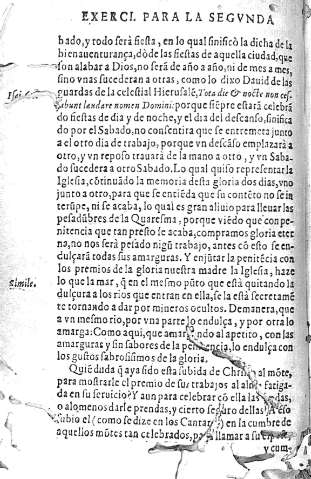 EXERCI. PARA LA SEGVNDA
bado, y todo serà fiesta, en lo qual sinificò la dicha de la
bienauenturança, dõde las fiestas de aquella ciudad, que
son alabar a Dios, no serà de año a año, ni de mes a mes,
sino vnas sucederan a otras, como lo dixo Dauid de las
guardas de la celestial Hierusalé, Tota die & nocte non ces-
sabunt laudare nomen Domini: porque siẽpre estarà celebrã
do fiestas de dia y de noche, y el dia del descanso, sinifica
do por el Sabado, no consentira que se entremeta junto
a el otro dia de trabajo, porque vn descãso emplazarà a
otro, y vn reposo trauarà de la mano a otro, y vn Saba-
do sucedera a otro Sabado. Lo qual quiso representar la
Iglesia, cõtinuãdo la memoria desta gloria dos dias, vno
junto a otro, para que se entiẽda que su contẽto no se in
terrũpe, ni se acaba, lo qual es gran aliuio para lleuar las
pesadũbres de la Quaresma, porque viẽdo que con pe-
nitencia que tan presto se acaba, compramos gloria eter
na, no nos serà pesado nigũ trabajo, antes cõ esto se en-
dulçarà todas sus amarguras. Y enjũtar la penitẽcia con
los premios de la gloria nuestra madre la Iglesia, haze
Simile.
lo que la mar, q̃ en el mesmo pũto que està quitando la
dulçura a los rios que entran en ella, se la està secretamẽ
te tornando a dar por mineros ocultos. De manera, que
a vn mesmo rio, por vna parte lo endulça, y por otra lo
amarga: Como aqui, que amarga ndo al apetito, con las
amarguras y sin sabores de la penitencia, lo endulça con
los gustos sabrosissimos de la gloria.
Quiẽ duda q̃ aya sido esta subida de Christo al mõte,
para mostrarle el premio de sus trabajos al alma fatiga-
da en su seruicio? Y aun para celebrar cõ ella las
o alomenos darle prendas, y cierto seguro dellas? A eso
subio el (como se dize en los Cantares) en la cumbre de
aquellos mõtes tan celebrados, para llamar a su esposa
y cum-